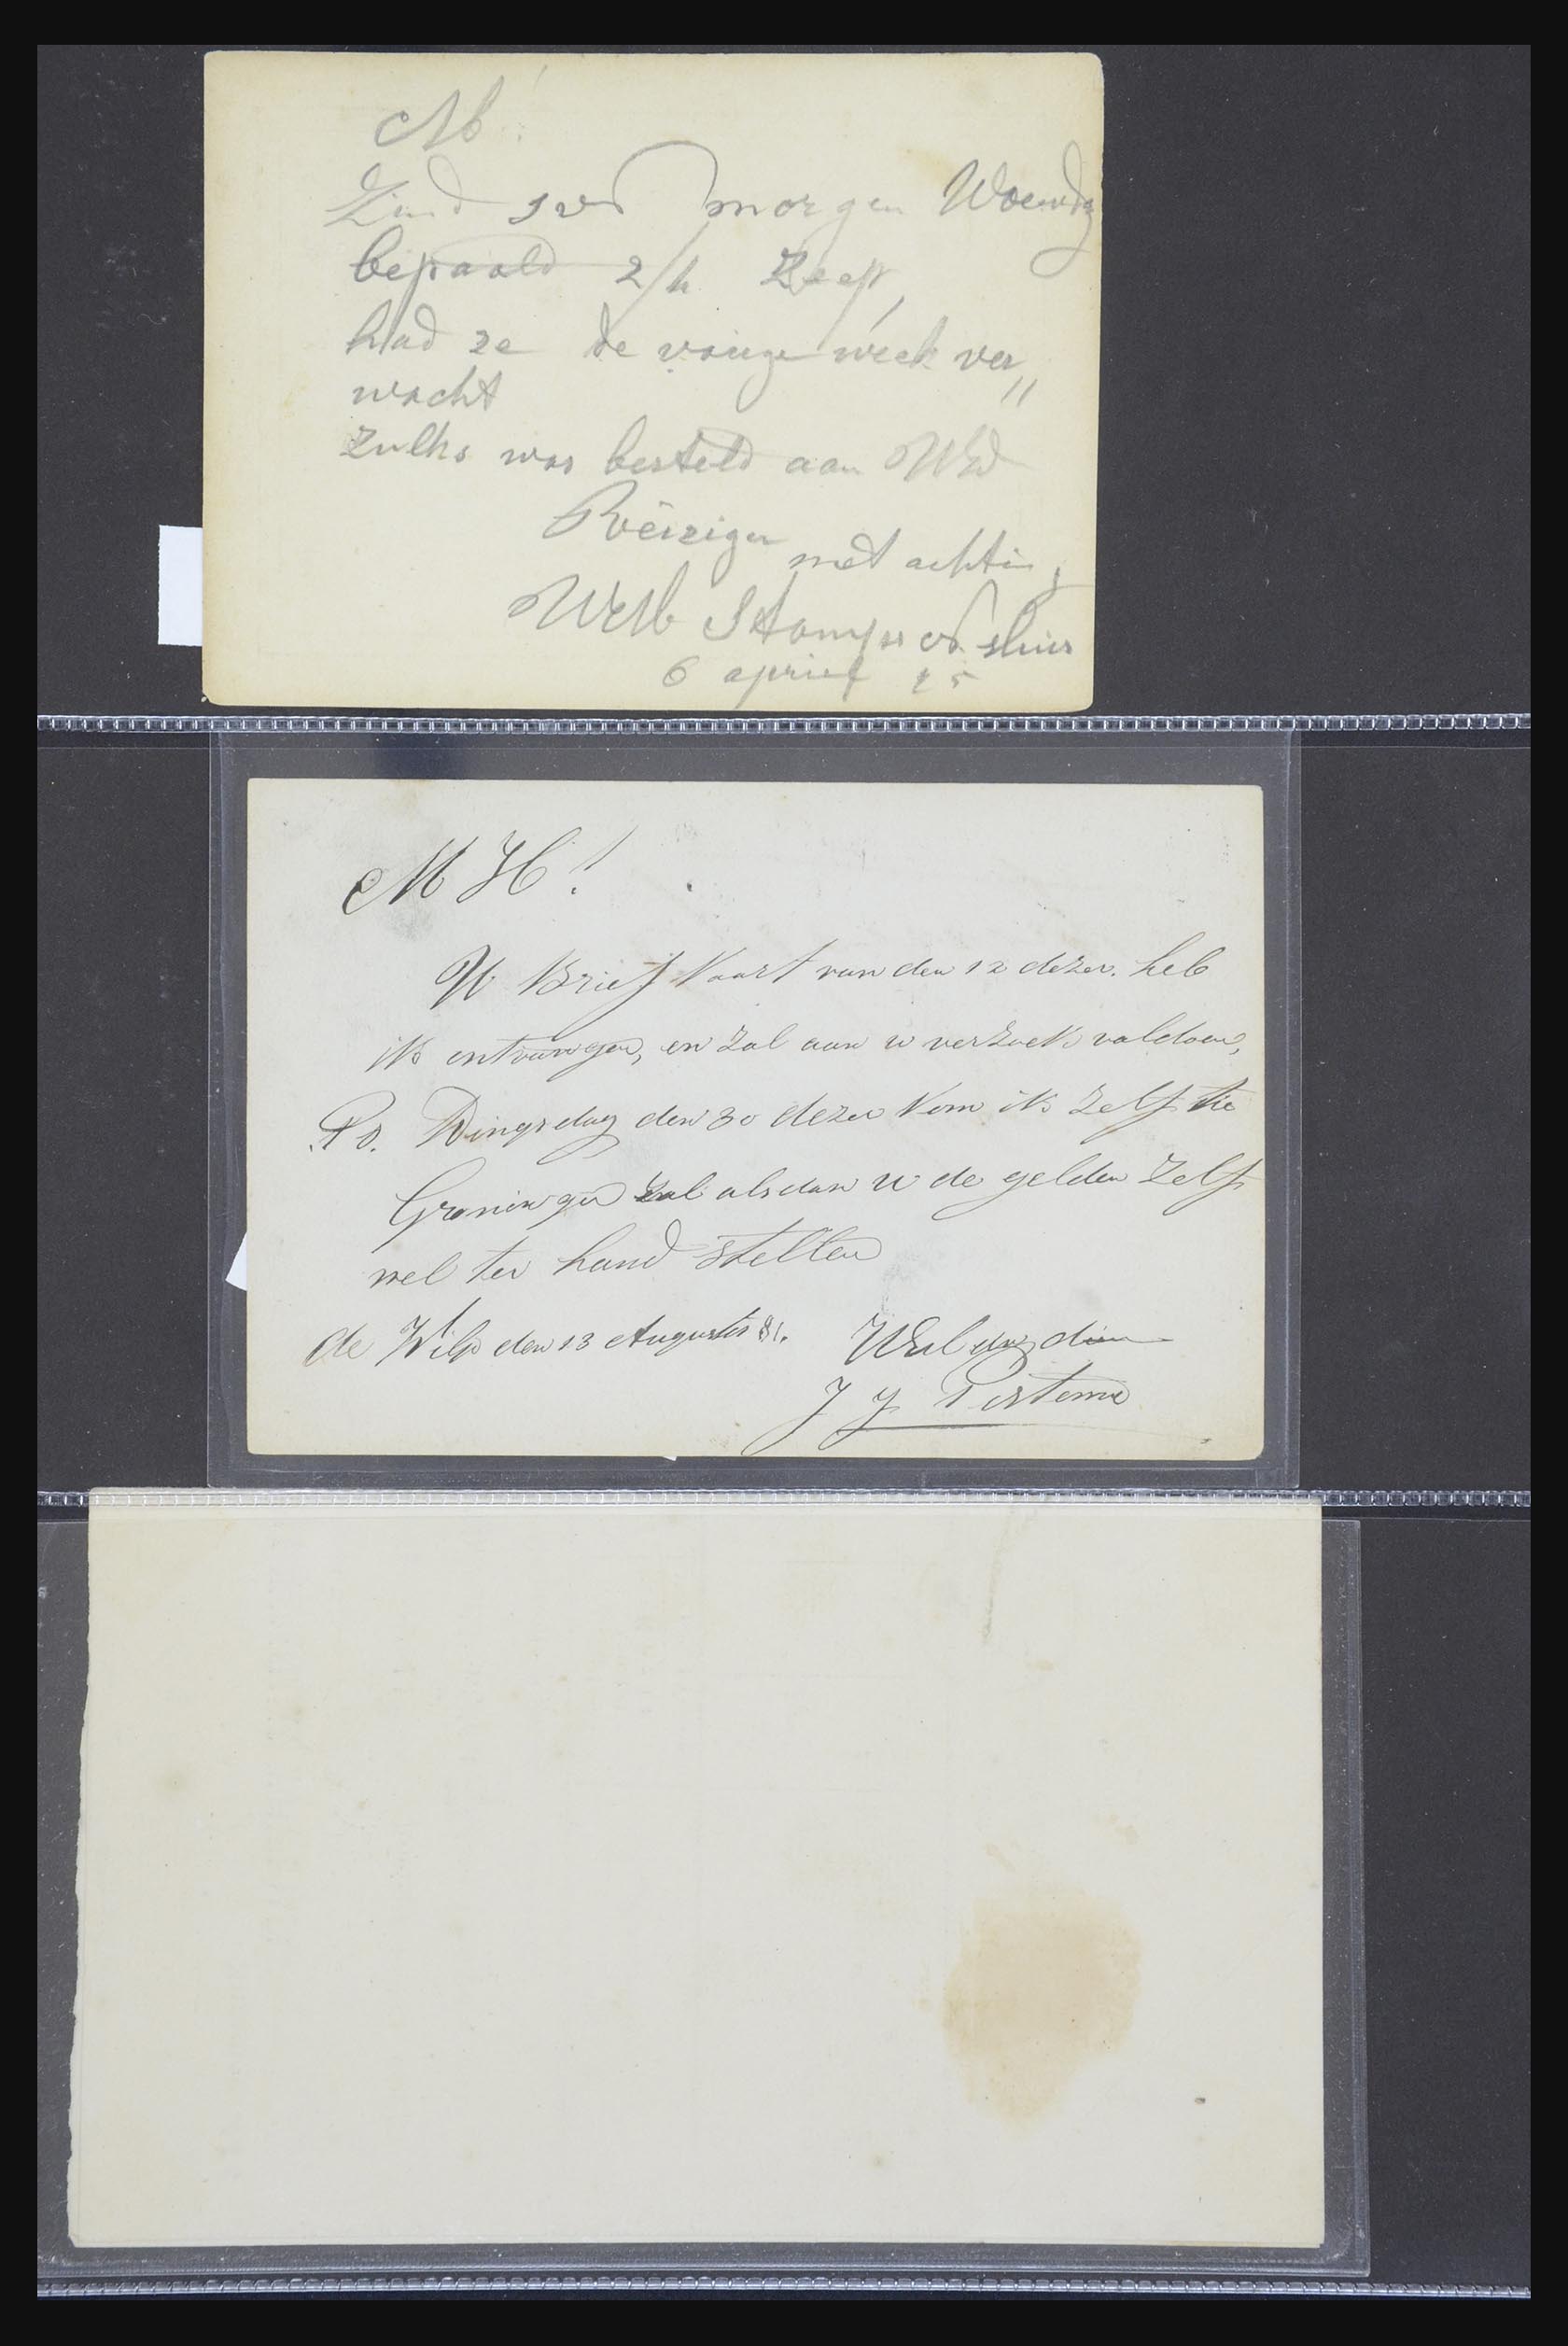 M !
Zend morgen Woensdg
bepaald 2/h Zeep,
had ze de vorige week ver„
wacht
zulks was besteld aan Uwd
Reiziger
met achting
6 april 25
M H !
Uw Briefkaart van den 12 dezer. heb
ik ontvangen, en zal aan u verzoek voldoen,
P.S. Dingsdag den 30 dezer kom ik zelf te
Groningen zal alsdan u de gelden zelf
wel ter hand stellen
de Wilp den 13 Augustus 81.
J J Postema